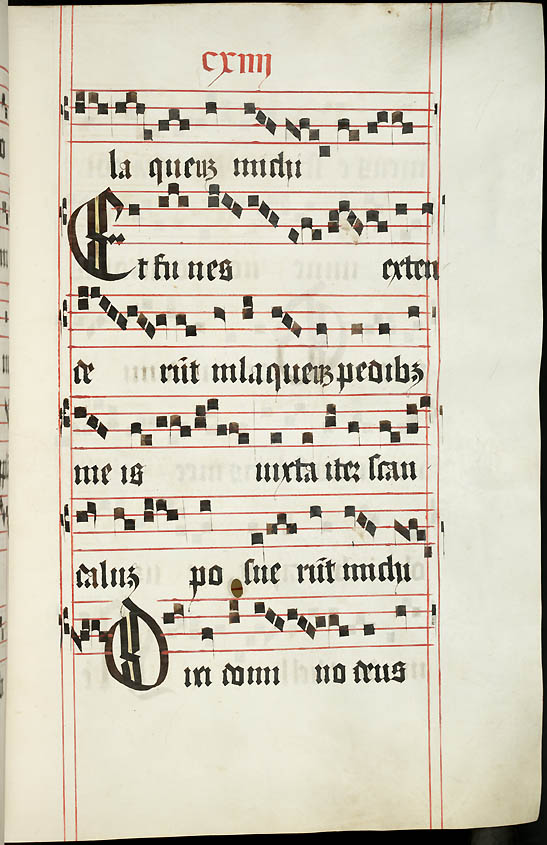 cxiiij
la queuʒ michi
Et fu nes exten
de rūt in laqueuʒ pedibʒ
me is iuxta iteʒ scan
daluʒ po sue rūt michi
Dixi domi no deus